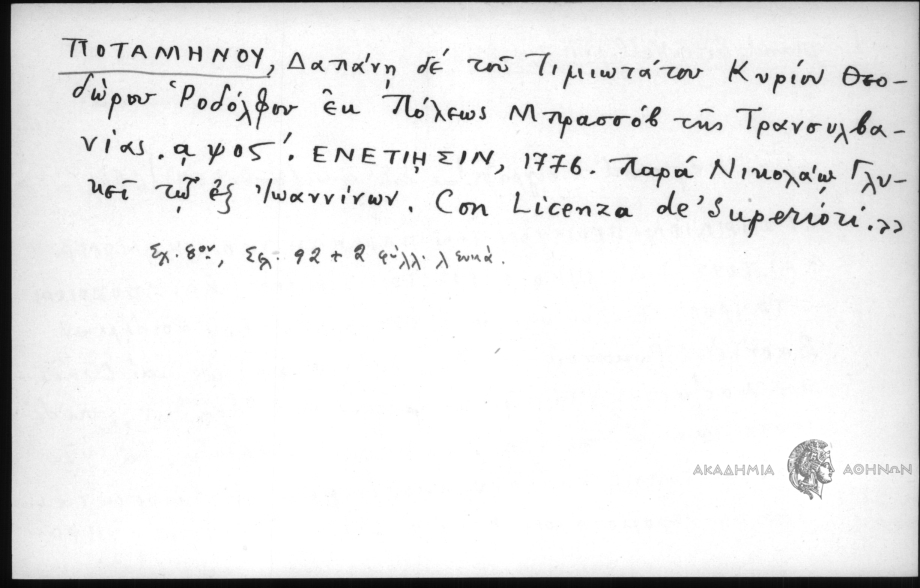 ΠΟΤΑΜΗΝΟΥ, Δαπάνῃ δέ τοῦ Τιμιωτάτου Κυρίου Θεο-
δώρου Ῥοδόλφου ἐκ Πόλεως Μπρασσόβ τῆς Τρανσυλβα-
νίας. αψοστʹ. ΕΝΕΤΙΗΣΙΝ, 1776. Παρά Νικολάῳ Γλυ-
κεῖ τῷ ἐξ Ἰωαννίνων. Con Licenza de' Superiori.»
Σχ. 8ον, Σελ. 92 + 2 φύλλ. λευκά.
ΑΚΑΔΗΜΙΑ ΑΘΗΝΩΝ